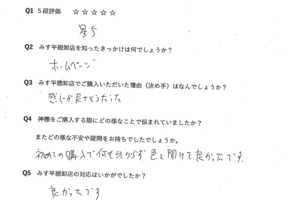 Q1 5段評価 ☆ ☆ ☆ ☆ ☆
星5
Q2 みす平總卸店を知ったきっかけは何でしょうか?
ホームページ
Q3 みす平總卸店でご購入いただいた理由(決め手)はなんでしょうか?
感じが良さそうだった
Q4 神棚をご購入する際にどの様なことで悩まれていましたか?
またどの様な不安や疑問をお持ちでしたでしょうか。
初めての購入で何も分からず色々聞けて良かったです
Q5 みす平總卸店の対応はいかがでしたか?
良かったです